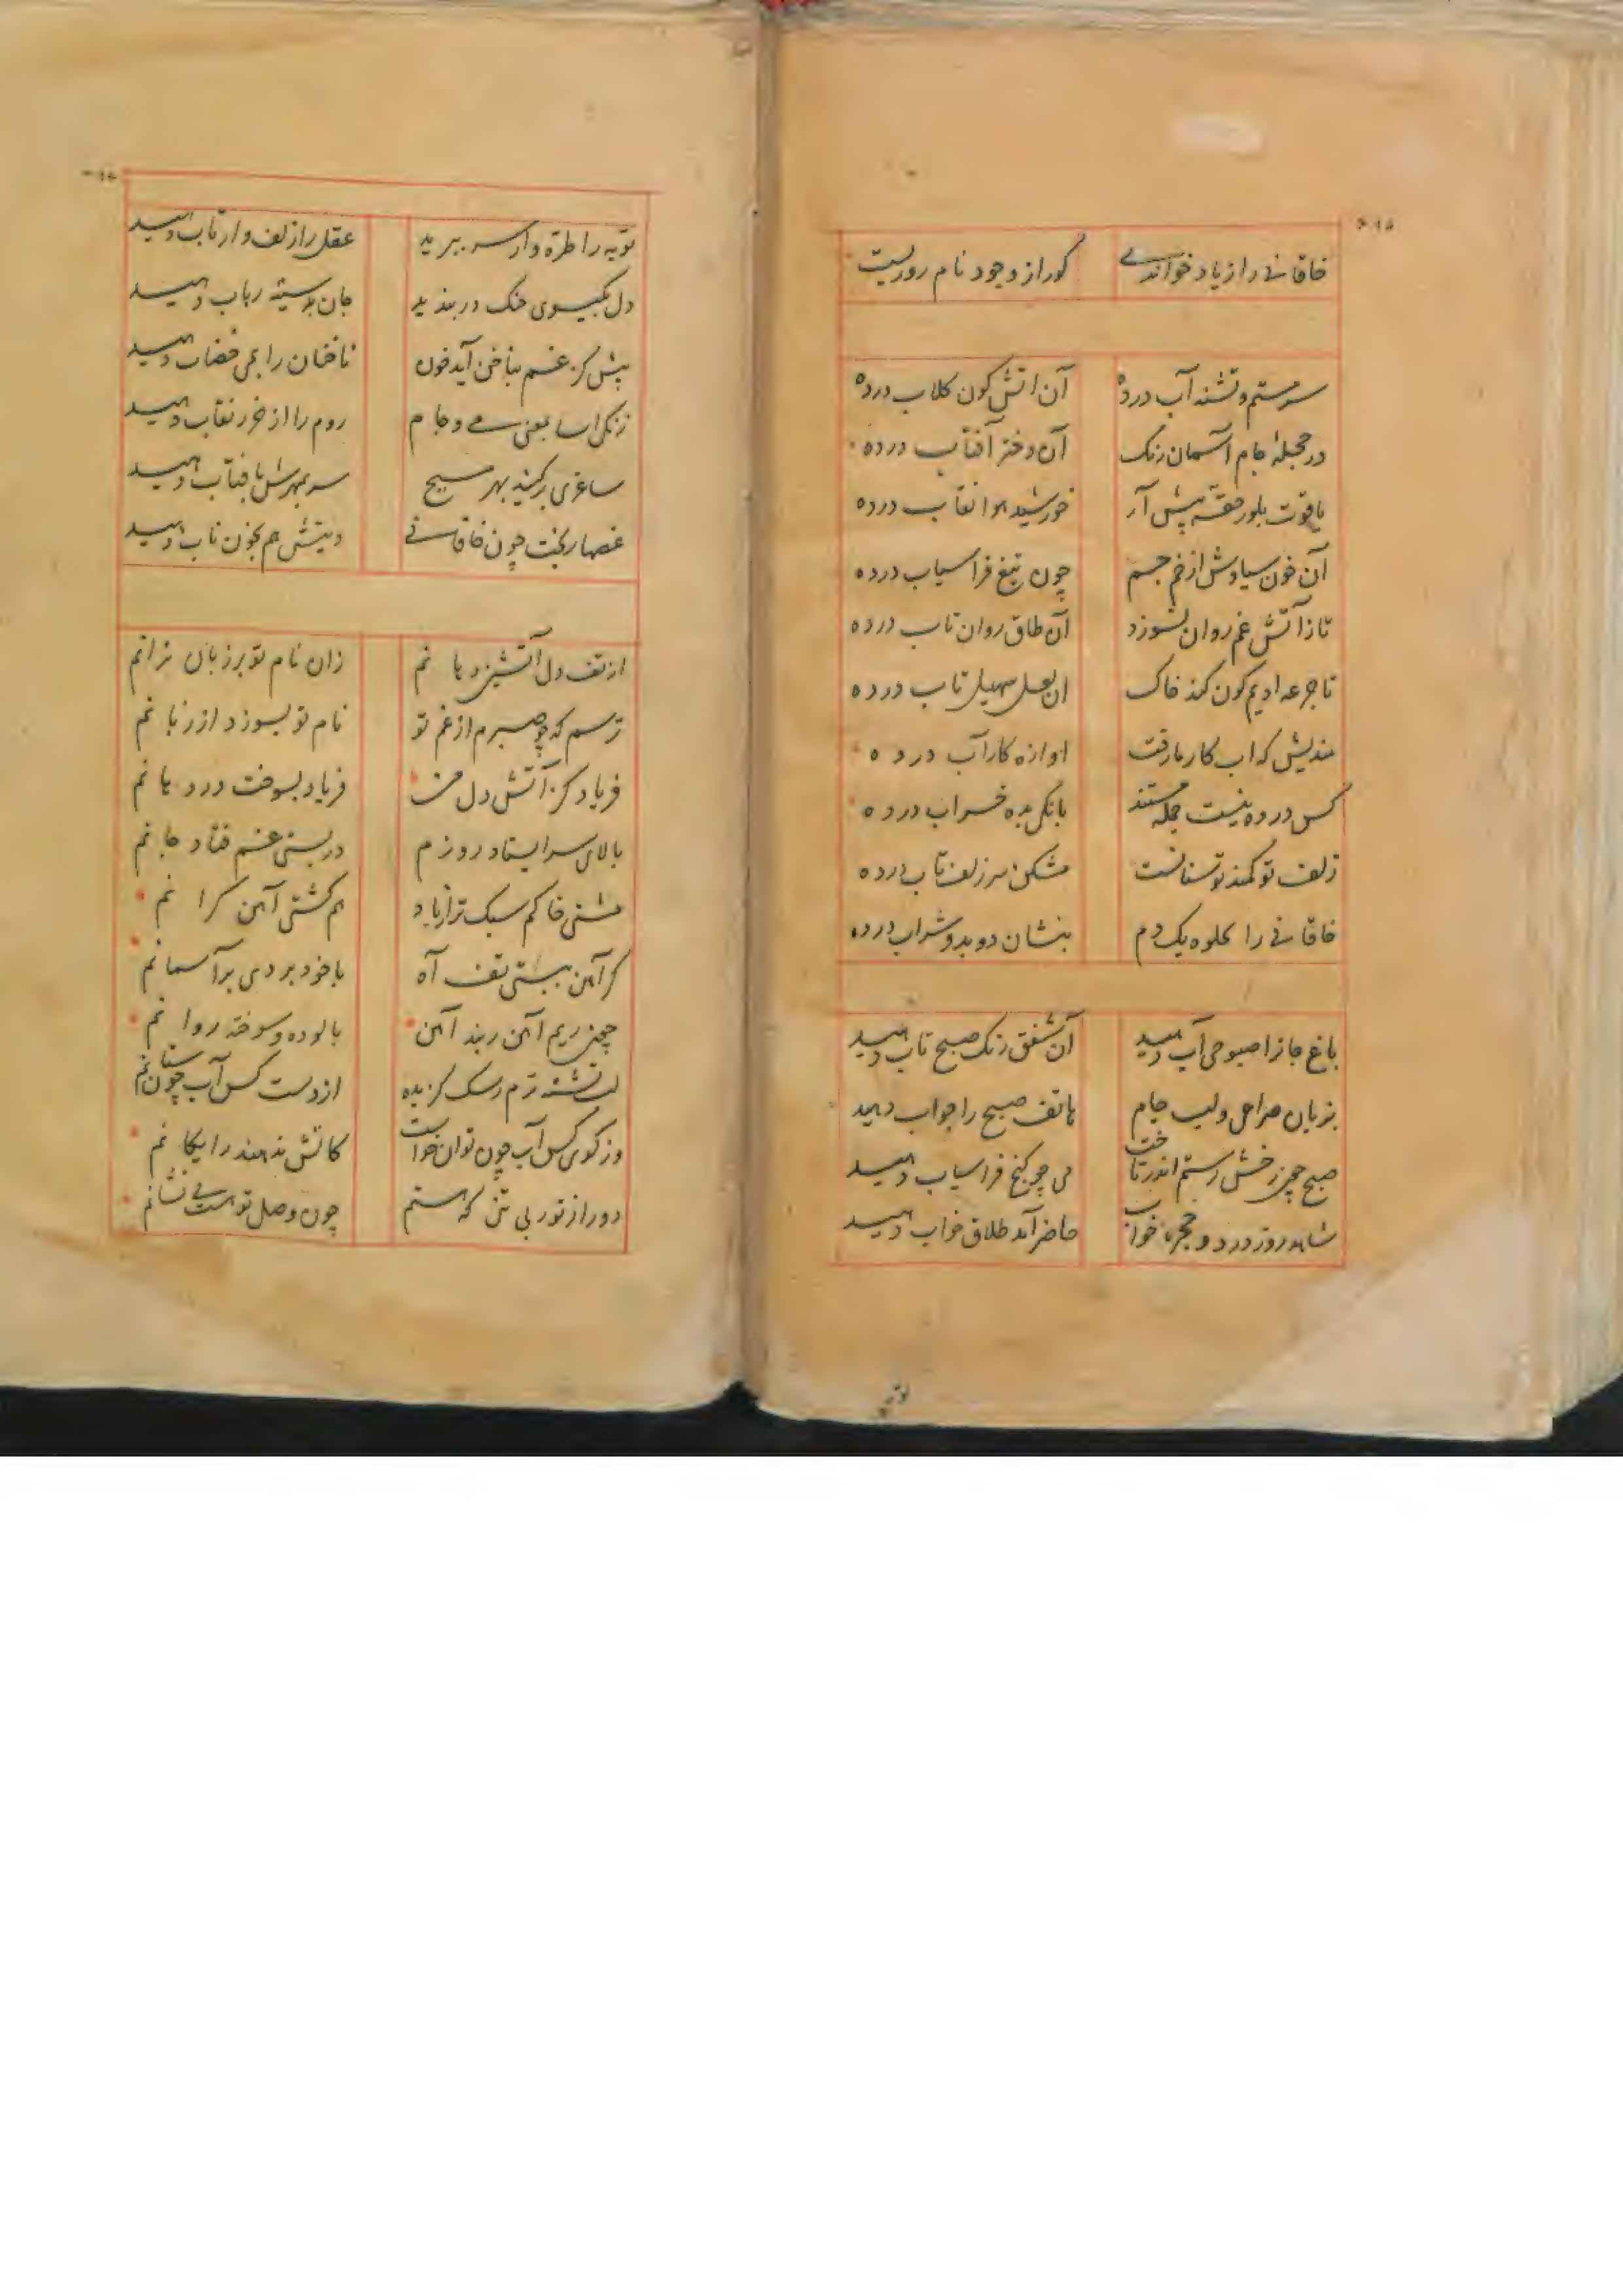 خاقانی را زیاد خوانندی کور از وجود نام روریست
سرمستم و تشنه آب درده آن اتش کون کلاب درده
در حجله جام آسمان رنک آن دختر آفتاب درده
یاقوت بلور حقه پیش آر خورشید هوا نقاب درده
آن خون سیاوش از خم جسم چون تیغ فراسیاب درده
تا زآتش غم روان نسوزد آن طلق روان ناب درده
تا جرعه ادیم کون کند خاک ان لعل سهیل تاب درده
مندیش که اب کار ما رفت اوازه کار آب درده
کس در ده نیست جمله مستند بانکی بده خراب درده
زلف تو کمند توسنانست مشکن سر زلف تاب درده
خاقانی را بخلوه یک دم بنشان دو بدو شراب درده
باغ جانرا صبوحی آب دهید آن شفق رنک صبح تاب دهید
بزبان صراحی و لب جام هاتف صبح را جواب دهید
صبح چون رخش رستم اندر تاخت می چو کنج فراسیاب دهید
شاهد روز در دو حجره خواب حاضر آمد طلاق خواب دهید
توبه
توبه را طره وار سر ببرید عقل را زلف وار تاب دهید
دل بکیسوی چنک دربندید جان بدسته رباب دهید
پیش کز غم بناخن آید خون ناخنان را بمی خضاب دهید
زنکی اسا بمعنی می و جام روم را از خزر نقاب دهید
ساغری بر کنید بهر مسیح سر بمهرش بافتاب دهید
غصها ریخت خون خاقانی دیتش هم بخون ناب دهید
از تف دل آتشین دهانم زان نام تو بر زبان نرانم
ترسم که چو صبرم از غم تو نام تو بسوزد از زبانم
فریاد کز آتش دل من فریاد بسوخت در دهانم
بالای سر ایستاد روزم در پستی غم فتاد جانم
مشتی خاکم سبک تر از باد هم کشتی آهن کرانم
کر آهن نیستی تف آه با خود بردی بر آسمانم
چون ریم آهن ز بند آهن پالوده و سوخته روانم
لب تشنه ترم ز سک کزیده از دست کس آب چون ستانم
وز کوی کس آب چون توان خواست کاتش ندهند رایکانم
دور از تو ز بی تنی که هستم چون وصل تو هست بی نشانم